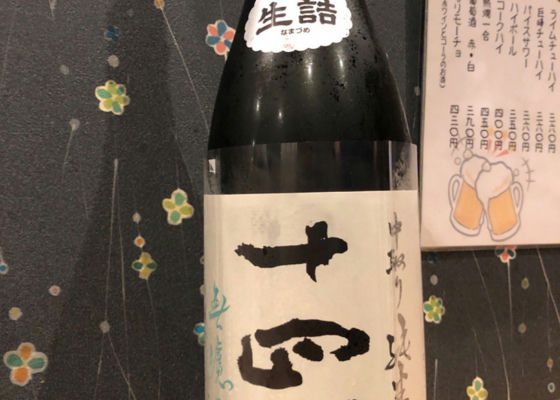 生詰
なまづめ
十四
中取り純米
巨峰チューハイ 三六〇円
パイスサワー 三六〇円
ハイボール 三五〇円
コークハイ 四〇〇円
熱燗一合 四五〇円
葡萄酒 赤・白 三九〇円
カリモーチョ 四三〇円
(赤ワインとコーラのお酒)